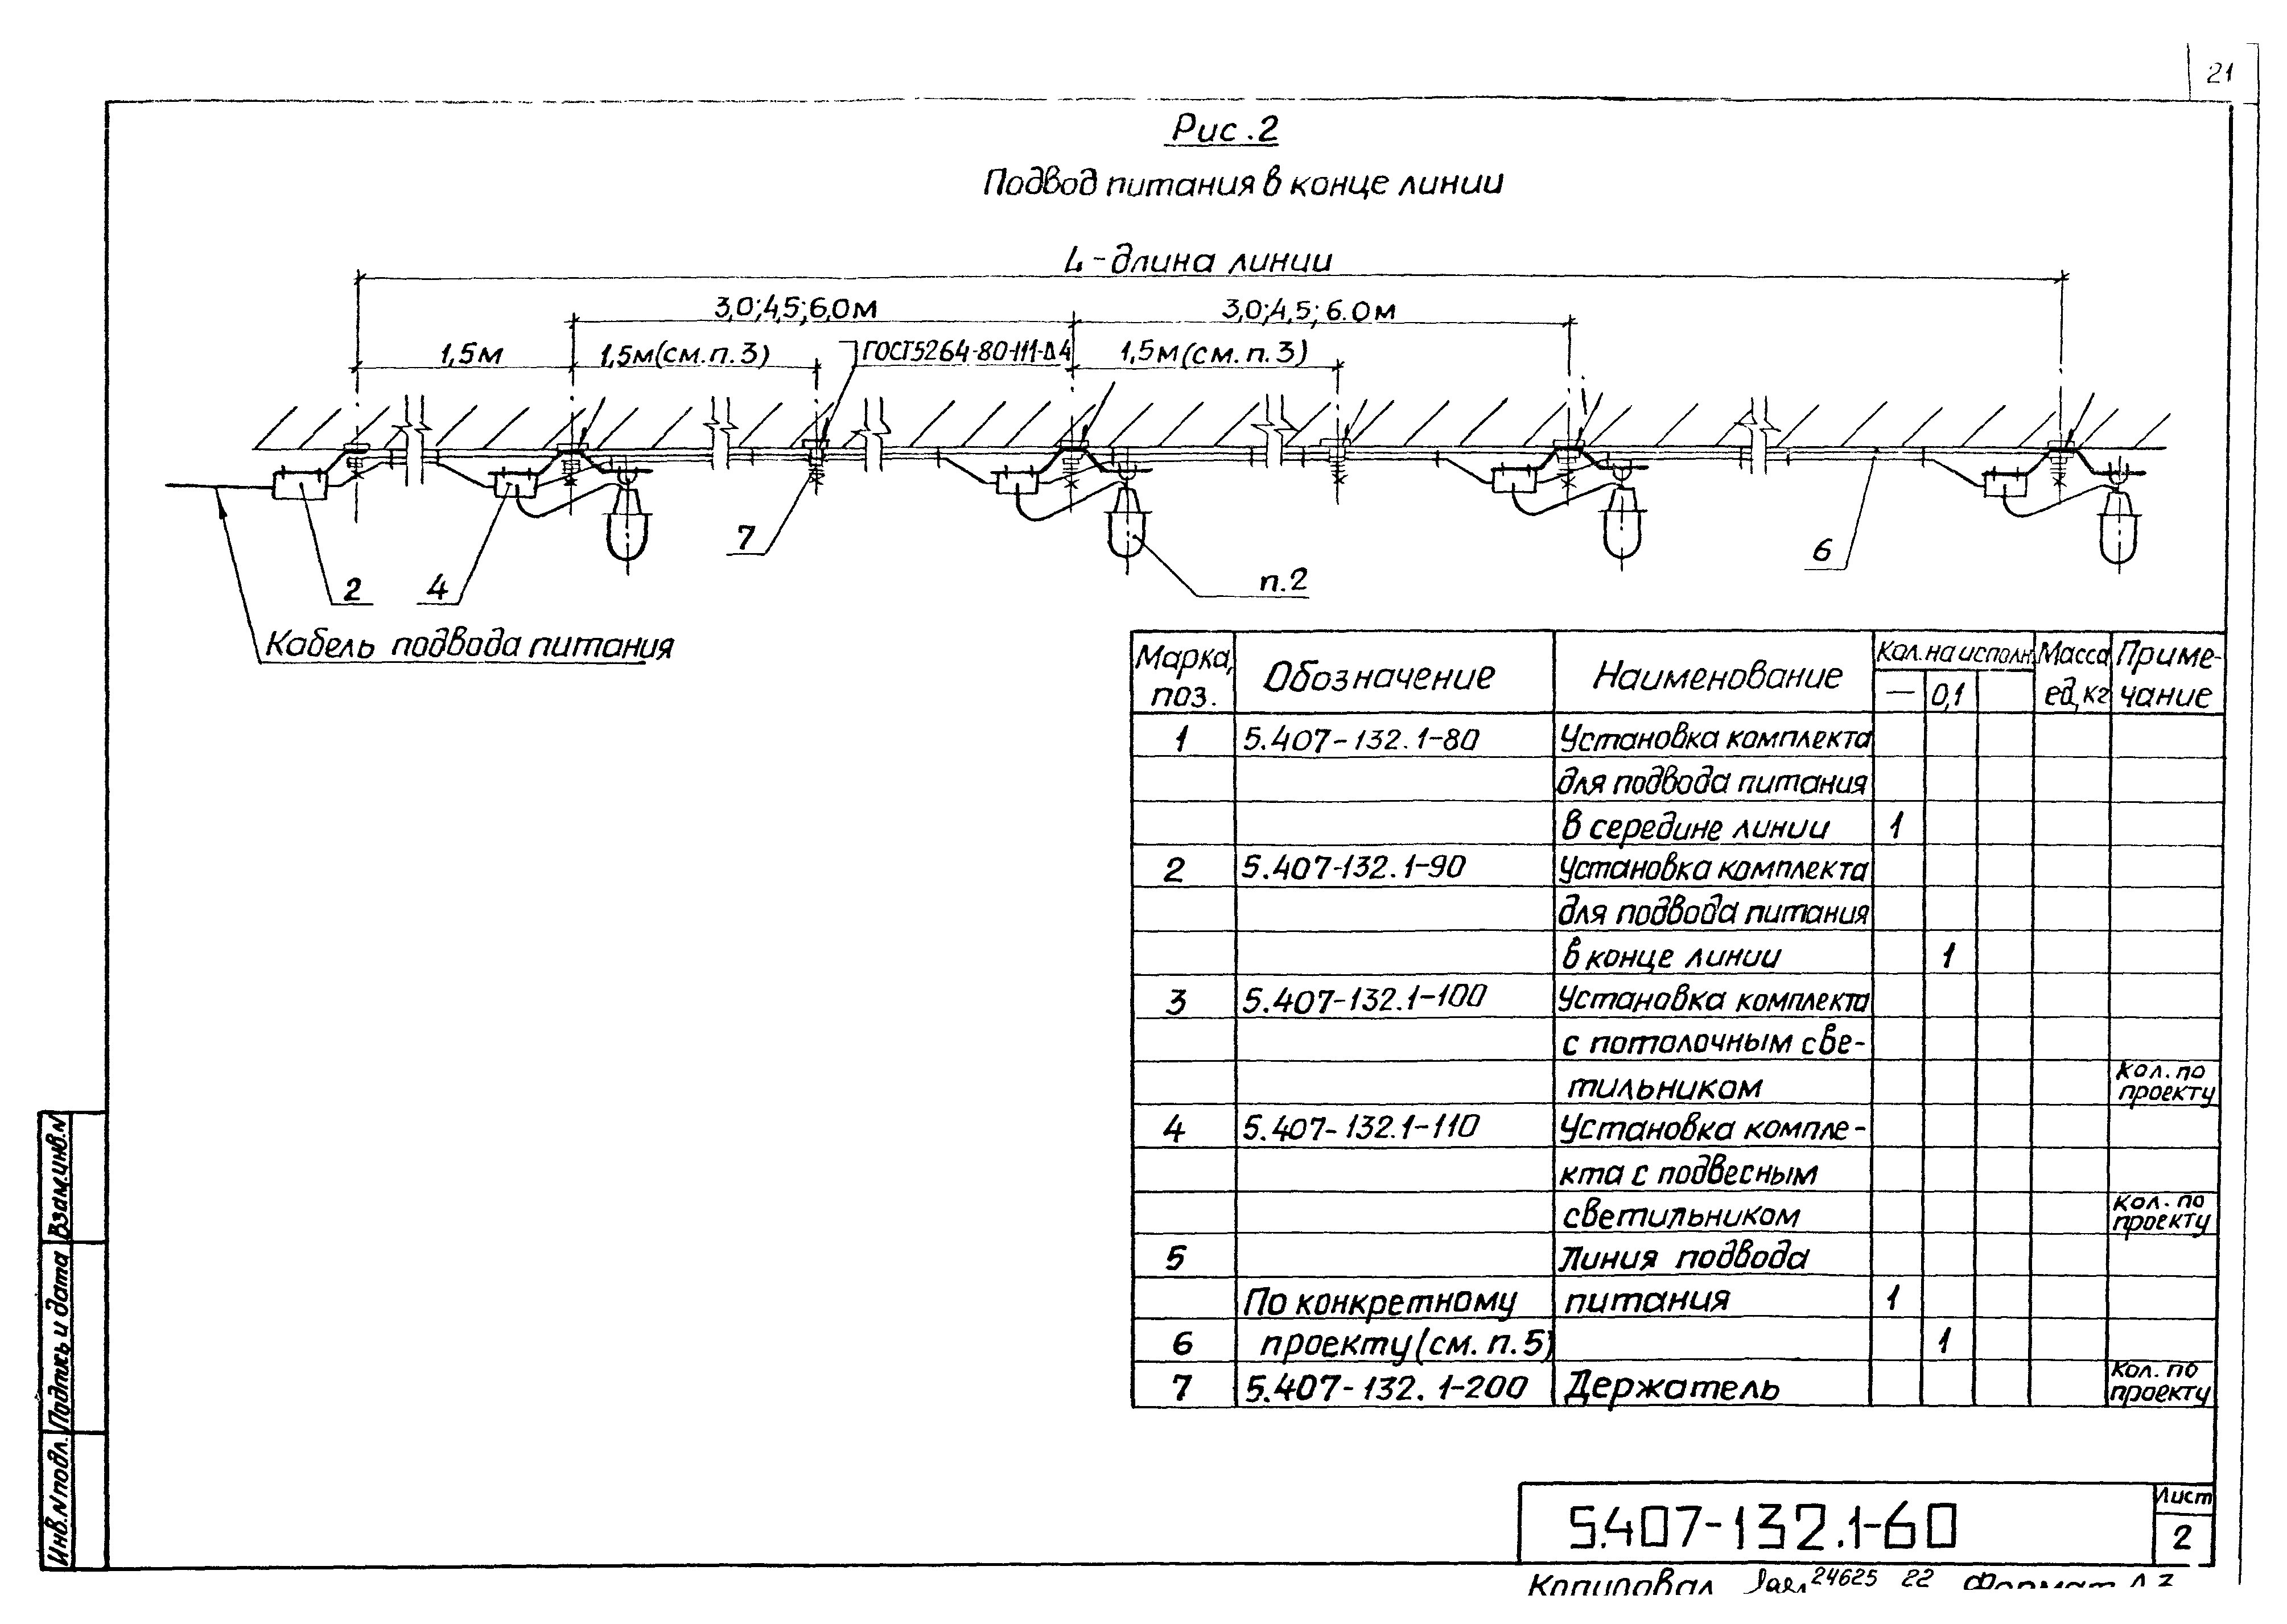 21
Рис.2
Подвод питания в конце линии
L - длина линии
3,0;4,5;6,0м
3,0;4,5;6.0м
1,5м
1,5м(см.п.3)
ГОСТ5264-80-Н1-Δ4
1,5м(см.п.3)
7
6
2
4
п.2
Кабель подвода питания
Марка, поз.
Обозначение
Наименование
Кол. на исполн.
Масса ед, кг
Приме-чание
—
0,1
1 5.407-132.1-80 Установка комплекта
для подвода питания
в середине линии 1
2 5.407-132.1-90 Установка комплекта
для подвода питания
в конце линии 1
3 5.407-132.1-100 Установка комплекта
с потолочным све-
тильником Кол. по проекту
4 5.407-132.1-110 Установка компле-
кта с подвесным
светильником Кол. по проекту
5 Линия подвода
По конкретному питания 1
6 проекту (см. п. 5) 1
7 5.407-132.1-200 Держатель Кол. по проекту
Взам.инв.N
Подпись и дата
Инв.N подл.
5.407-132.1-60
Лист
2
Копировал 24625 22 Формат А3